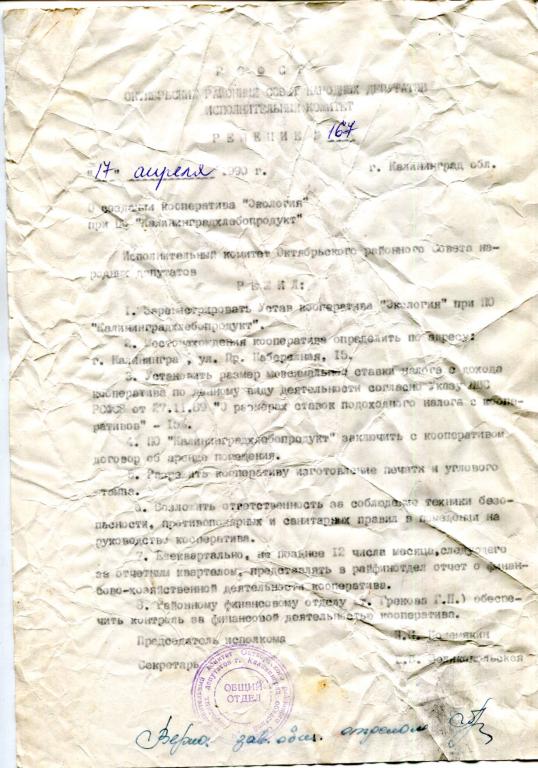 Р С Ф С Р
ОКТЯБРЬСКИЙ РАЙОННЫЙ СОВЕТ НАРОДНЫХ ДЕПУТАТОВ
ИСПОЛНИТЕЛЬНЫЙ КОМИТЕТ
Р Е Ш Е Н И Е № 167
"17" апреля 1990 г. г. Калининград обл.
О создании кооператива "Экология"
при ПО "Калининградхлебопродукт"
Исполнительный комитет Октябрьского районного Совета на-
родных депутатов
Р Е Ш И Л:
1. Зарегистрировать Устав кооператива "Экология" при ПО
"Калининградхлебопродукт".
2. Местонахождения кооператива определить по адресу:
г. Калининград, ул. Пр. Набережная, 15.
3. Установить размер максимальной ставки налога с дохода
кооператива по данному виду деятельности согласно Указу ПВС
РСФСР от 27.11.89 "О размерах ставок подоходного налога с коопе-
ративов" - 15%.
4. ПО "Калининградхлебопродукт" заключить с кооперативом
договор об аренде помещения.
5. Разрешить кооперативу изготовление печати и углового
штампа.
6. Возложить ответственность за соблюдение техники безо-
пасности, противопожарных и санитарных правил в помещении на
руководство кооператива.
7. Ежеквартально, не позднее 12 числа месяца, следующего
за отчетным кварталом, представлять в райфинотдел отчет о финан-
сово-хозяйственной деятельности кооператива.
8. Районному финансовому отделу (т. Г.П.) обеспе-
чить контроль за финансовой деятельностью кооператива.
Председатель исполкома
Секретарь
ОБЩИЙ
ОТДЕЛ
Верно: зав. общ. отделом